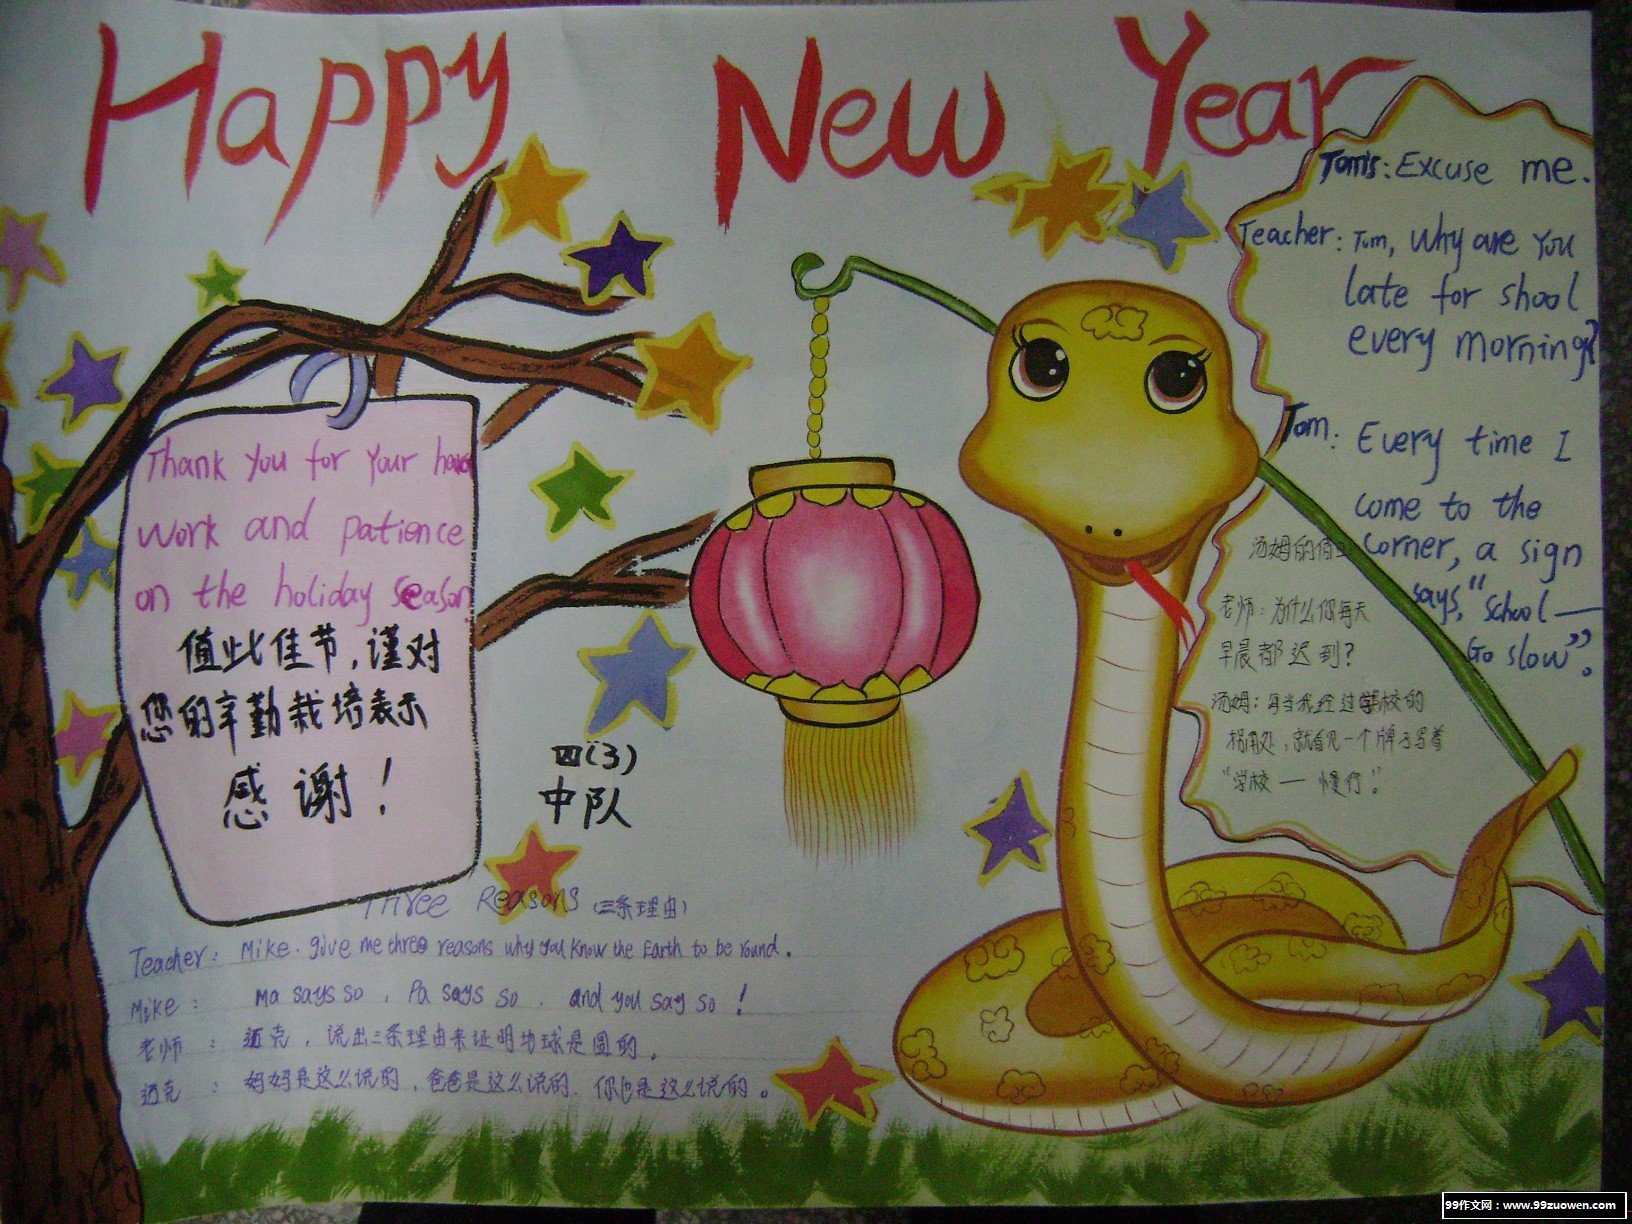 Happy New Year
Tom's: Excuse me.
Teacher: Tom, Why are you
late for shool
every morning?
Tom: Every time I
come to the
corner, a sign
says, "School —
Go slow".
汤姆的
老师：为什么你每天
早晨都迟到？
汤姆：每当我经过学校的
拐角处，就看见一个牌子写着
"学校 — 慢行"。
Thank you for your
work and patience
on the holiday season
值此佳节，谨对
您的辛勤栽培表示
感谢！
四(3)
中队
Three Reasons (三条理由)
Teacher: Mike. give me three reasons why you know the Earth to be round.
Mike: Ma says so, Pa says so. and you say so!
老师：迈克，说出三条理由来证明地球是圆的。
迈克：妈妈是这么说的，爸爸是这么说的．你也是这么说的。
99作文网：www.99zuowen.com